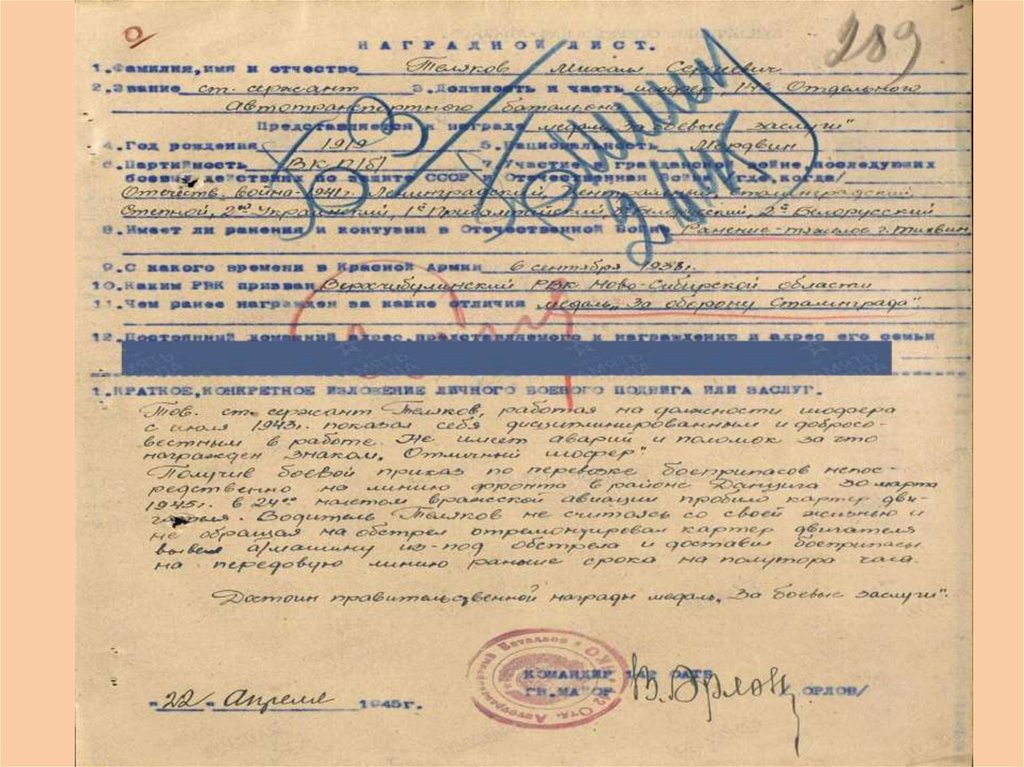 289
НАГРАДНОЙ ЛИСТ.
1. Фамилия, имя и отчество Теляков Михаил Сергеевич
2. Звание ст. сержант 3. Должность и часть шофер, 142 Отдельного
Автотранспортного батальона
Представляется к награде медаль "За боевые заслуги"
4. Год рождения 1919 5. Национальность Мордвин
6. Партийность ВКП(б) 7. Участие в гражданской войне, последующих
боевых действиях по защите СССР и Отечественной войне /где, когда/
Отечеств. война-1941г. Ленинградский, Центральный, Сталинградский
Степной, 2ой Украинский, 1й Прибалтийский, Белорусский, 2й Белорусский
8. Имеет ли ранения и контузии в Отечественной Войне Ранение-тяжелое г. Тихвин
9. С какого времени в Красной Армии 6 сентября 1938г.
10. Каким РВК призван Верхчибулинский РВК Ново-Сибирской области
11. Чем ранее награжден за какие отличия медаль "За оборону Сталинграда".
12. Постоянный домашний адрес представляемого к награждению и адрес его семьи
1. КРАТКОЕ, КОНКРЕТНОЕ ИЗЛОЖЕНИЕ ЛИЧНОГО БОЕВОГО ПОДВИГА ИЛИ ЗАСЛУГ.
Тов. ст. сержант Теляков, работая на должности шофера
с июля 1943г. показал себя дисциплинированным и добросо-
вестным в работе. Не имеет аварий и поломок за что
награжден знаком "Отличный шофер"
Получив боевой приказ по перевозке боеприпасов непос-
редственно на линию фронта в районе Данцига 30 марта
1945г. в 24оо налетом вражеской авиации пробило картер дви-
гателя. Водитель Теляков не считаясь со своей жизнью и
не обращая на обстрел отремонтировал картер двигателя
вывел а/машину из-под обстрела и доставил боеприпасы
на передовую линию раньше срока на полутора часа.
Достоин правительственной награды медаль "За боевые заслуги".
КОМАНДИР 142 ОАТБ
ГВ. МАЙОР В. Орлов /ОРЛОВ/
"22" Апреля 1945г.